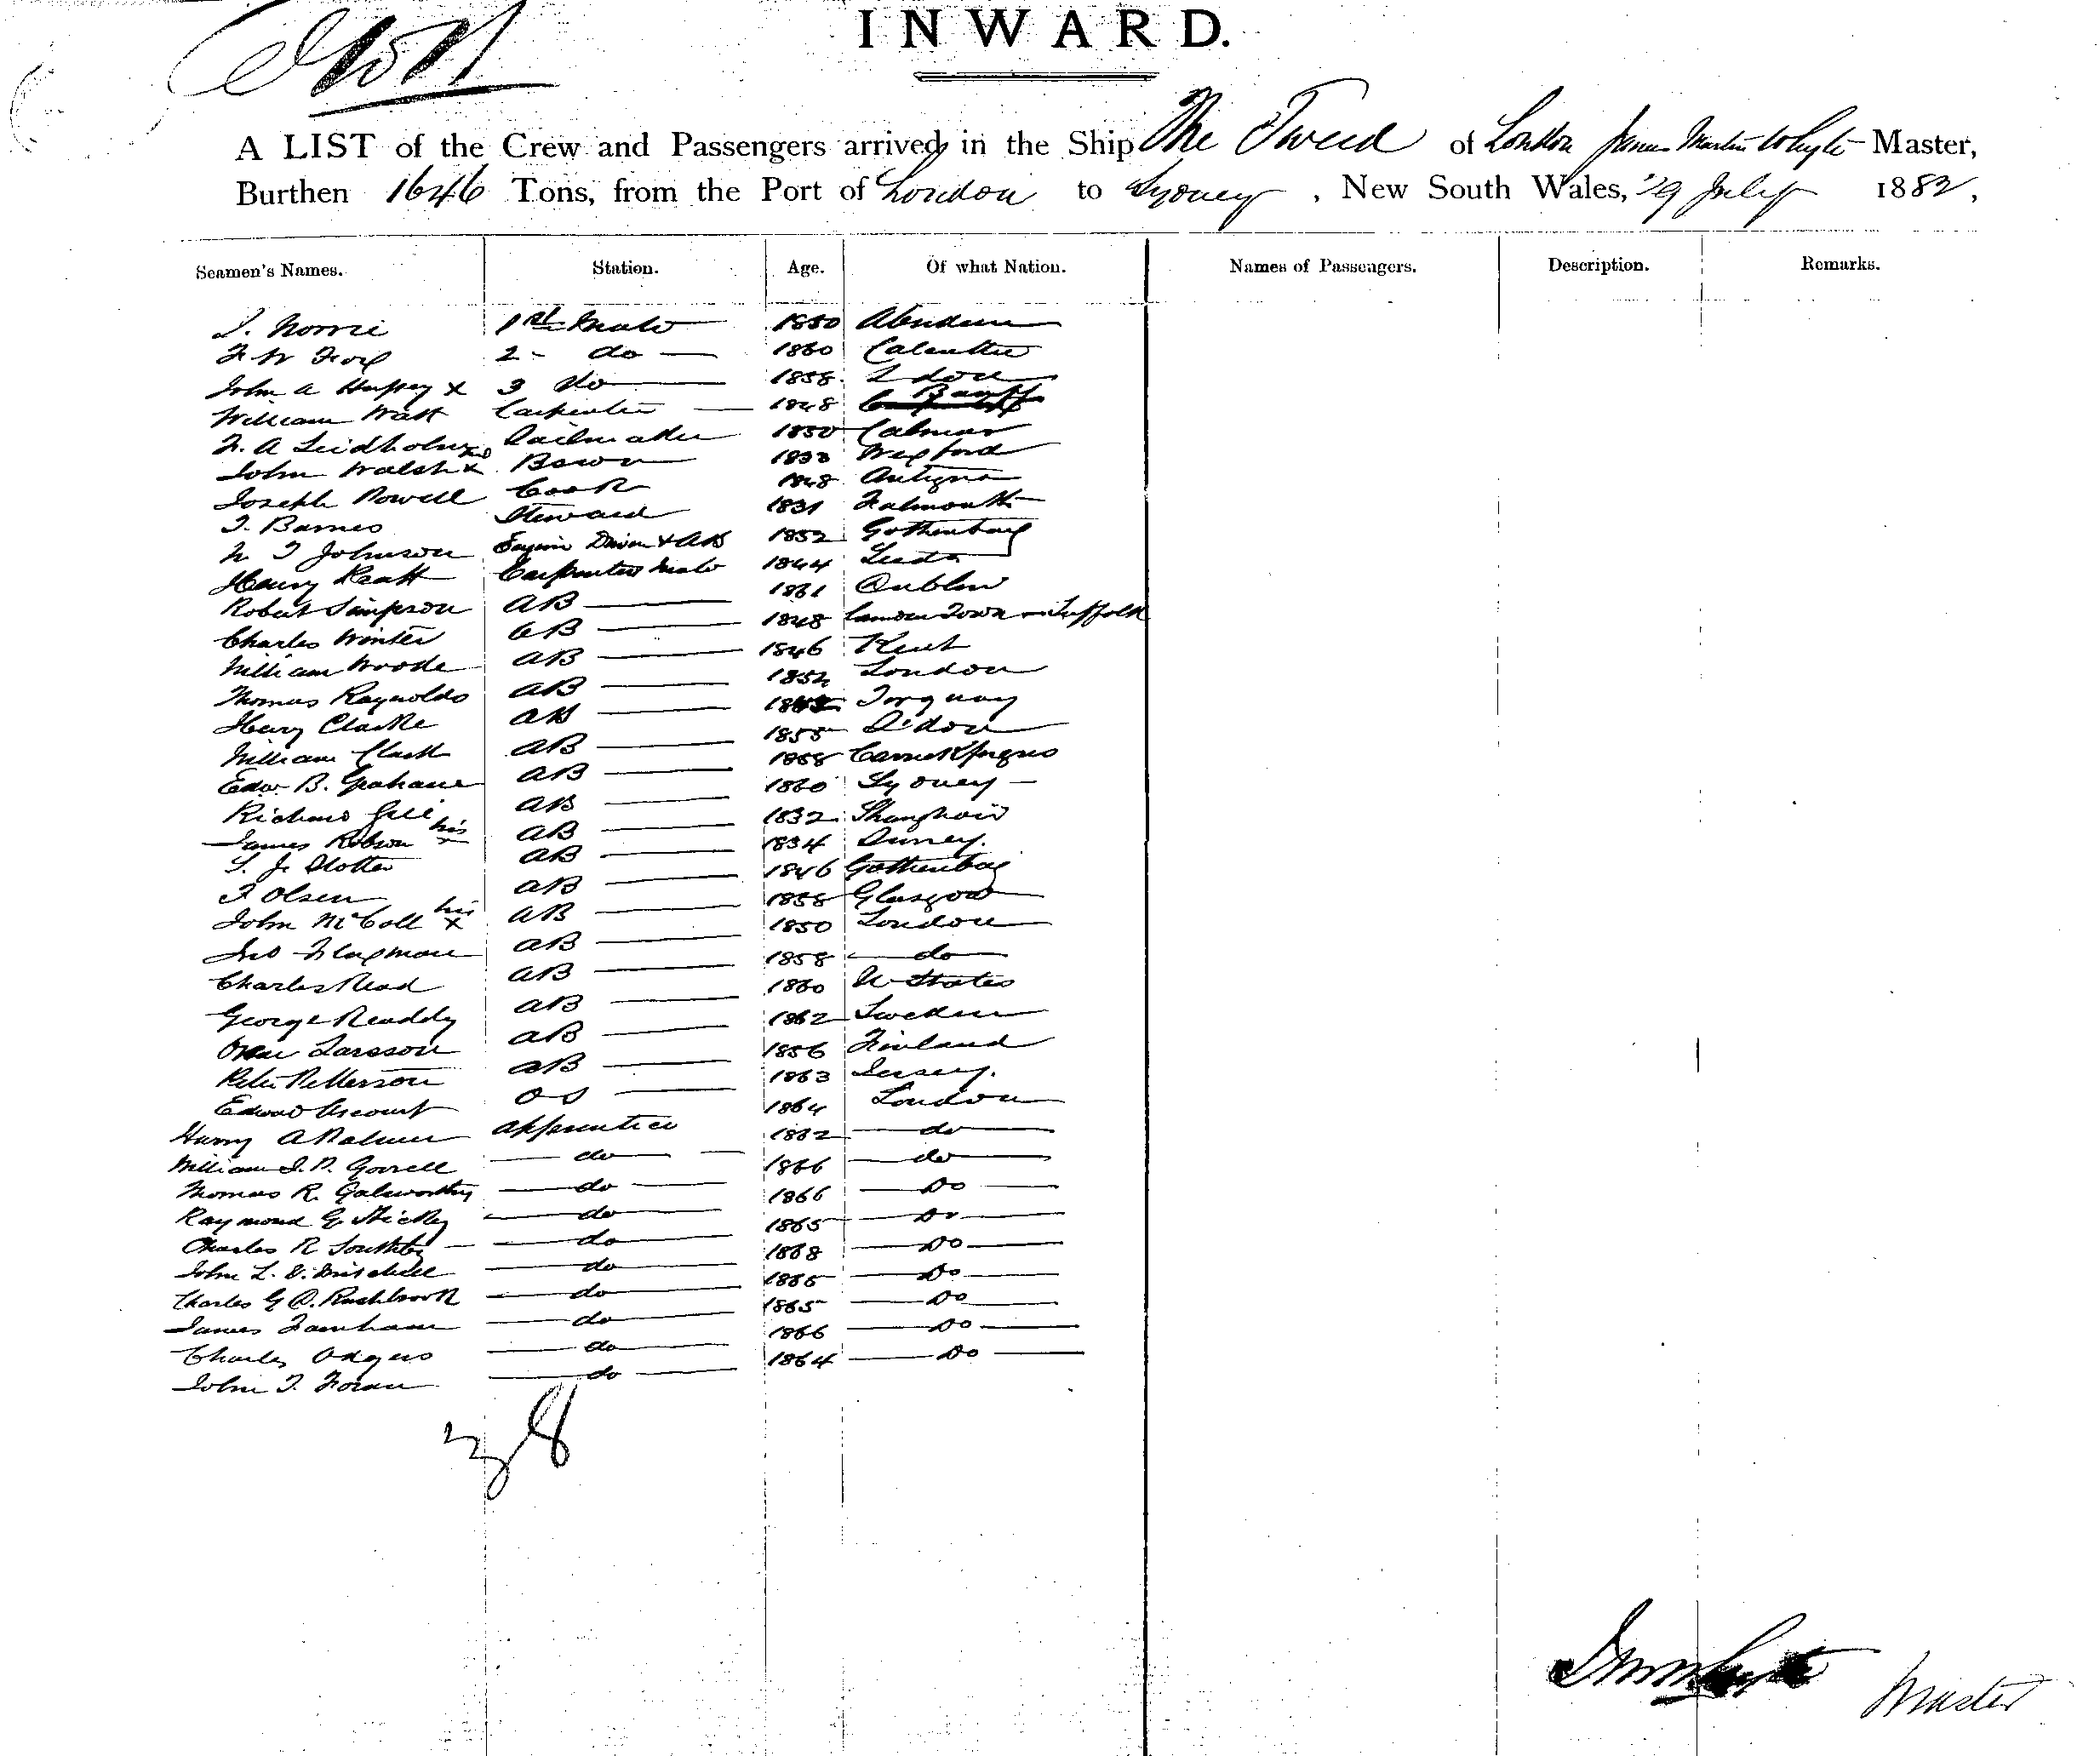 INWARD.
A LIST of the Crew and Passengers arrived in the Ship The Tweed of London James Martin Whyte Master,
Burthen 1646 Tons, from the Port of London to Sydney, New South Wales, 29 July 1882,
Seamen's Names. Station. Age. Of what Nation. Names of Passengers. Description. Remarks.
J. Norrie 1st Mate 1850 Aberdeen
2 - do 1860 Calcutta
John A 3 do 1858
William Watt Carpenter 1848 Banff
Sailmaker 1850 Calmar
John Walsh x Bosun 1833 Wexford
Joseph Powell Cook 1848 Antigua
J. Barnes Steward 1831 Falmouth
Johnson Engine Driver & AB 1852 Gothenburg
Henry Carpenters Mate 1844 Leeds
Robert Simpson AB 1861 Dublin
Charles Winter AB 1848 Suffolk
William Woode AB 1846 Kent
Thomas Raynolds AB 1852 London
Henry Clarke AB Torquay
William Clark AB 1855
Edw. B. Grahame AB 1858 Carrickfergus
Richard AB 1860 Sydney
James Robson his x AB 1832 Shanghai
AB 1834
Olsen AB 1846 Gothenburg
John McColl his x AB 1858 Glasgow
AB 1850 London
Charles Read AB 1858 do
George Readdy AB 1860 U States
Larsson AB 1862 Sweden
Peter Petterson AB 1856 Finland
Edward OS 1863 Jersey.
Harry A Palmer Apprentice 1864 London
William do 1862 do
Thomas R. Galsworthy do 1866 do
Raymond G. Hickley do 1866 Do
Charles R Southby do 1865 Do
John L. do 1868 Do
Charles G Rushbrook do 1865 Do
James Farnham do 1865 Do
Charles Odgers do 1866 Do
John T. Foran do 1864 Do
38
Master